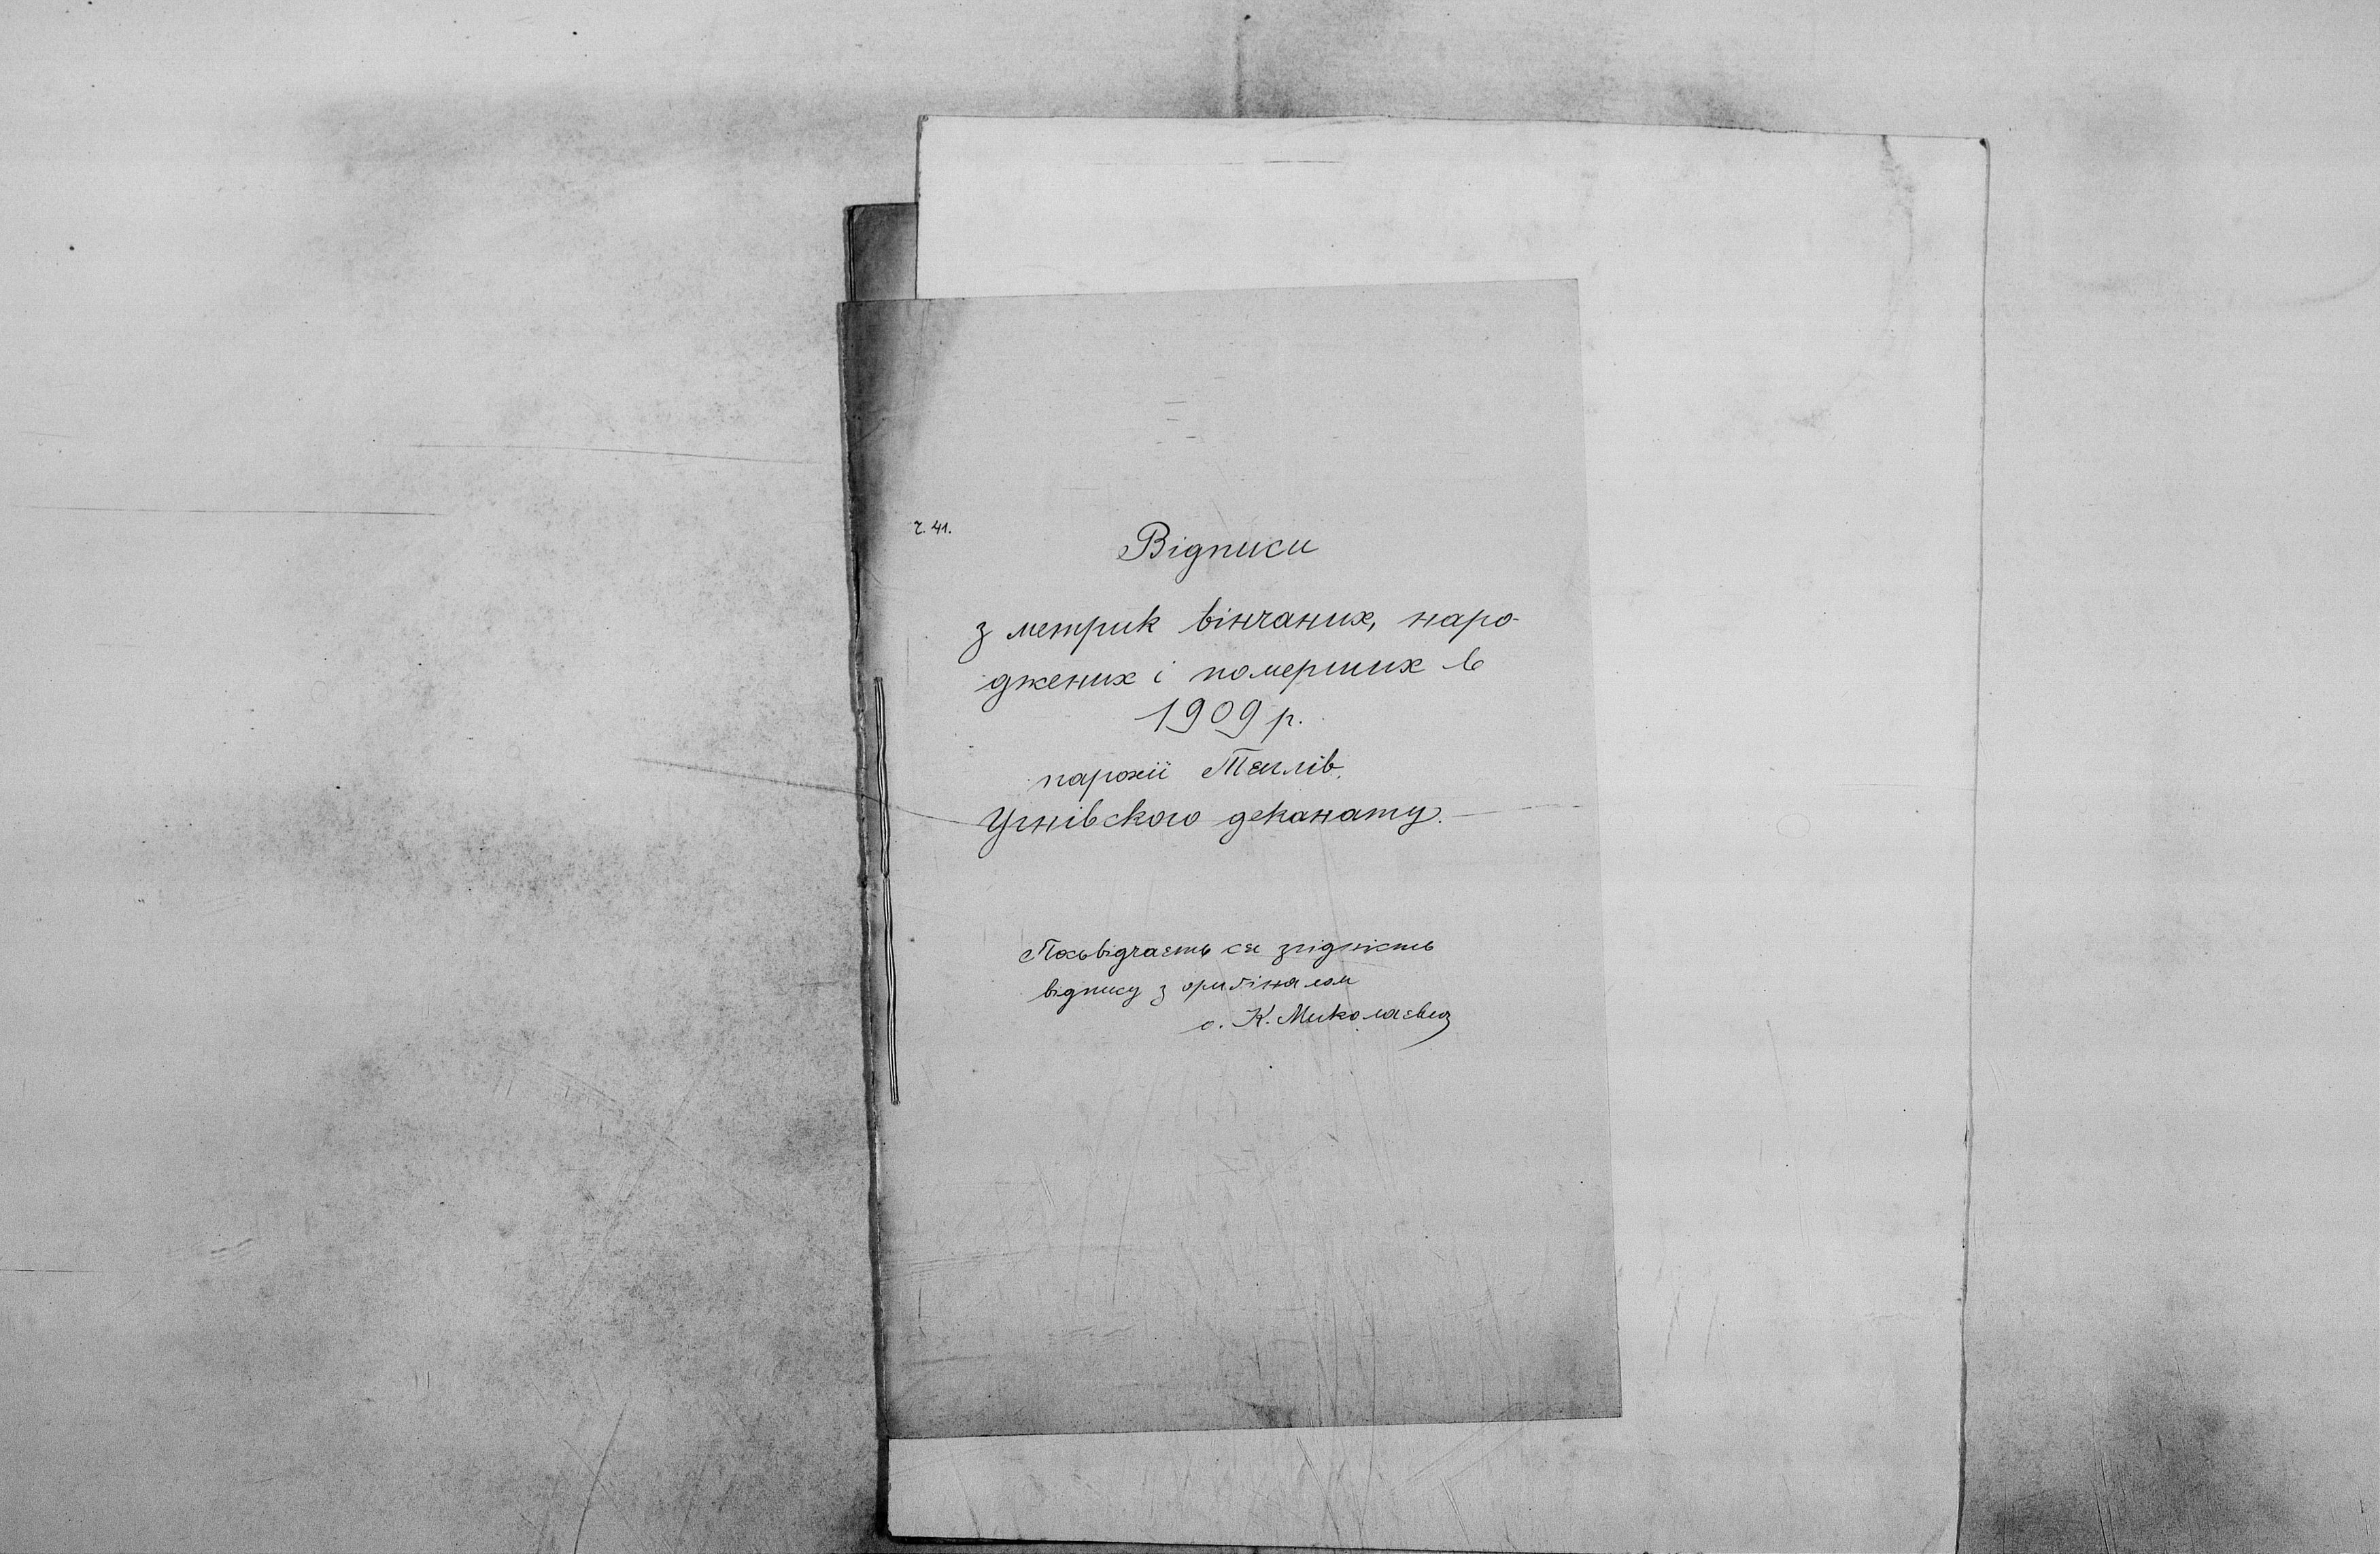 ч. 41.
Відписи
з метрик вінчаних, наро-
джених і померших в
1909 р.
парохії Тяглів,
Угнівского деканату.
Посьвідчаєть ся згідність
відпису з оріґіналом
о. К. Миколаєвич